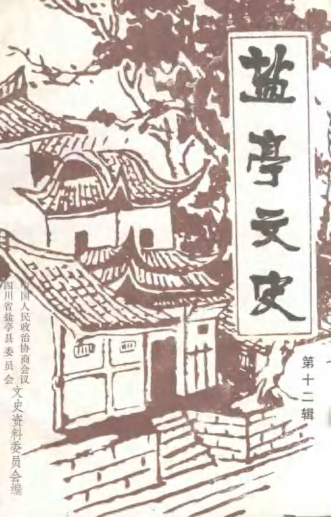 盐亭文史
第十二辑
中国人民政治协商会议
四川省盐亭县委员会
文史资料委员会编